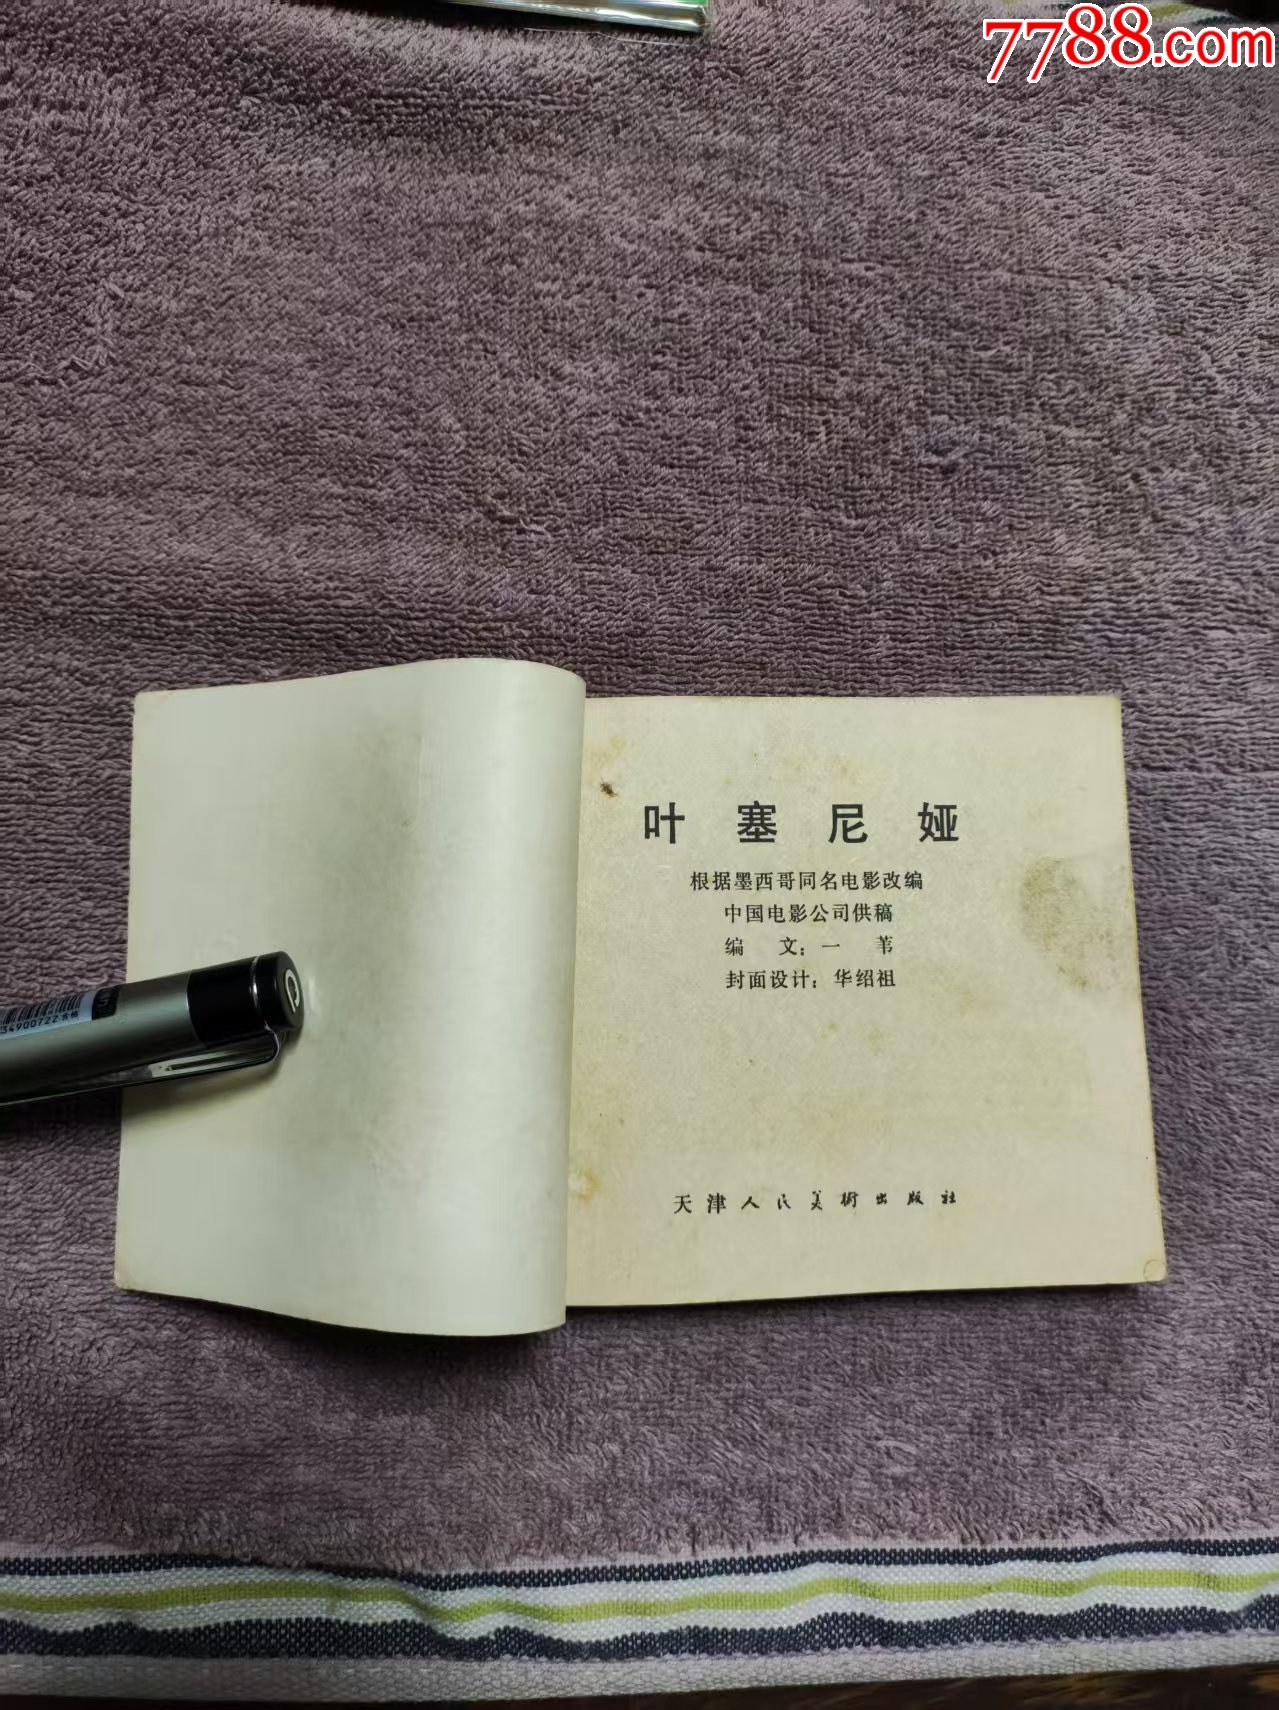 7788.com
叶塞尼娅
根据墨西哥同名电影改编
中国电影公司供稿
编 文：一 苇
封面设计：华绍祖
天津人民美術出版社
34900722